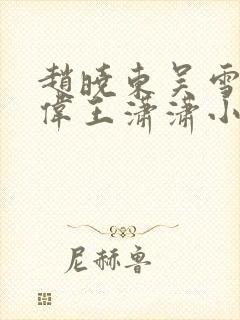 趙曉東吴雪
偉王瀟瀟小
尼赫鲁